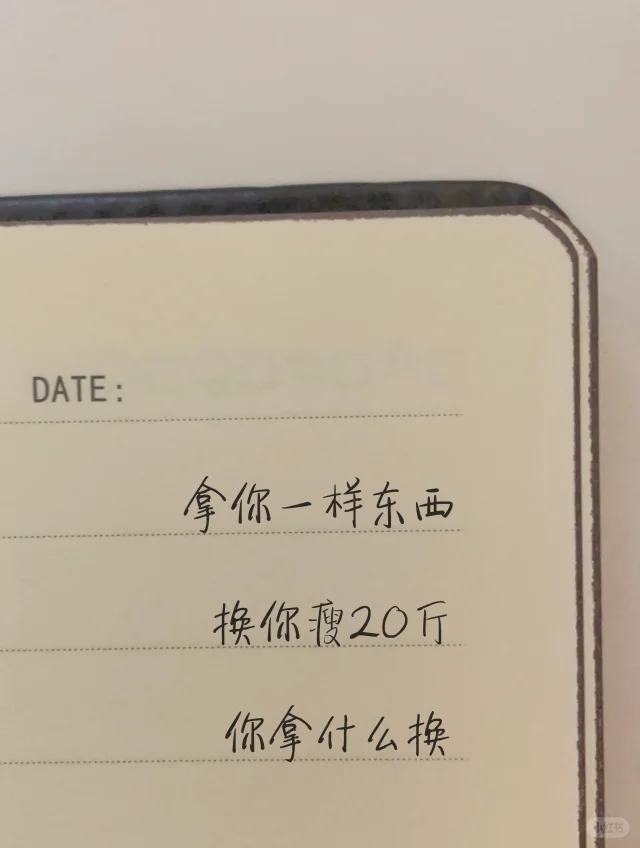 DATE:
拿你一样东西
换你瘦20斤
你拿什么换
小红书